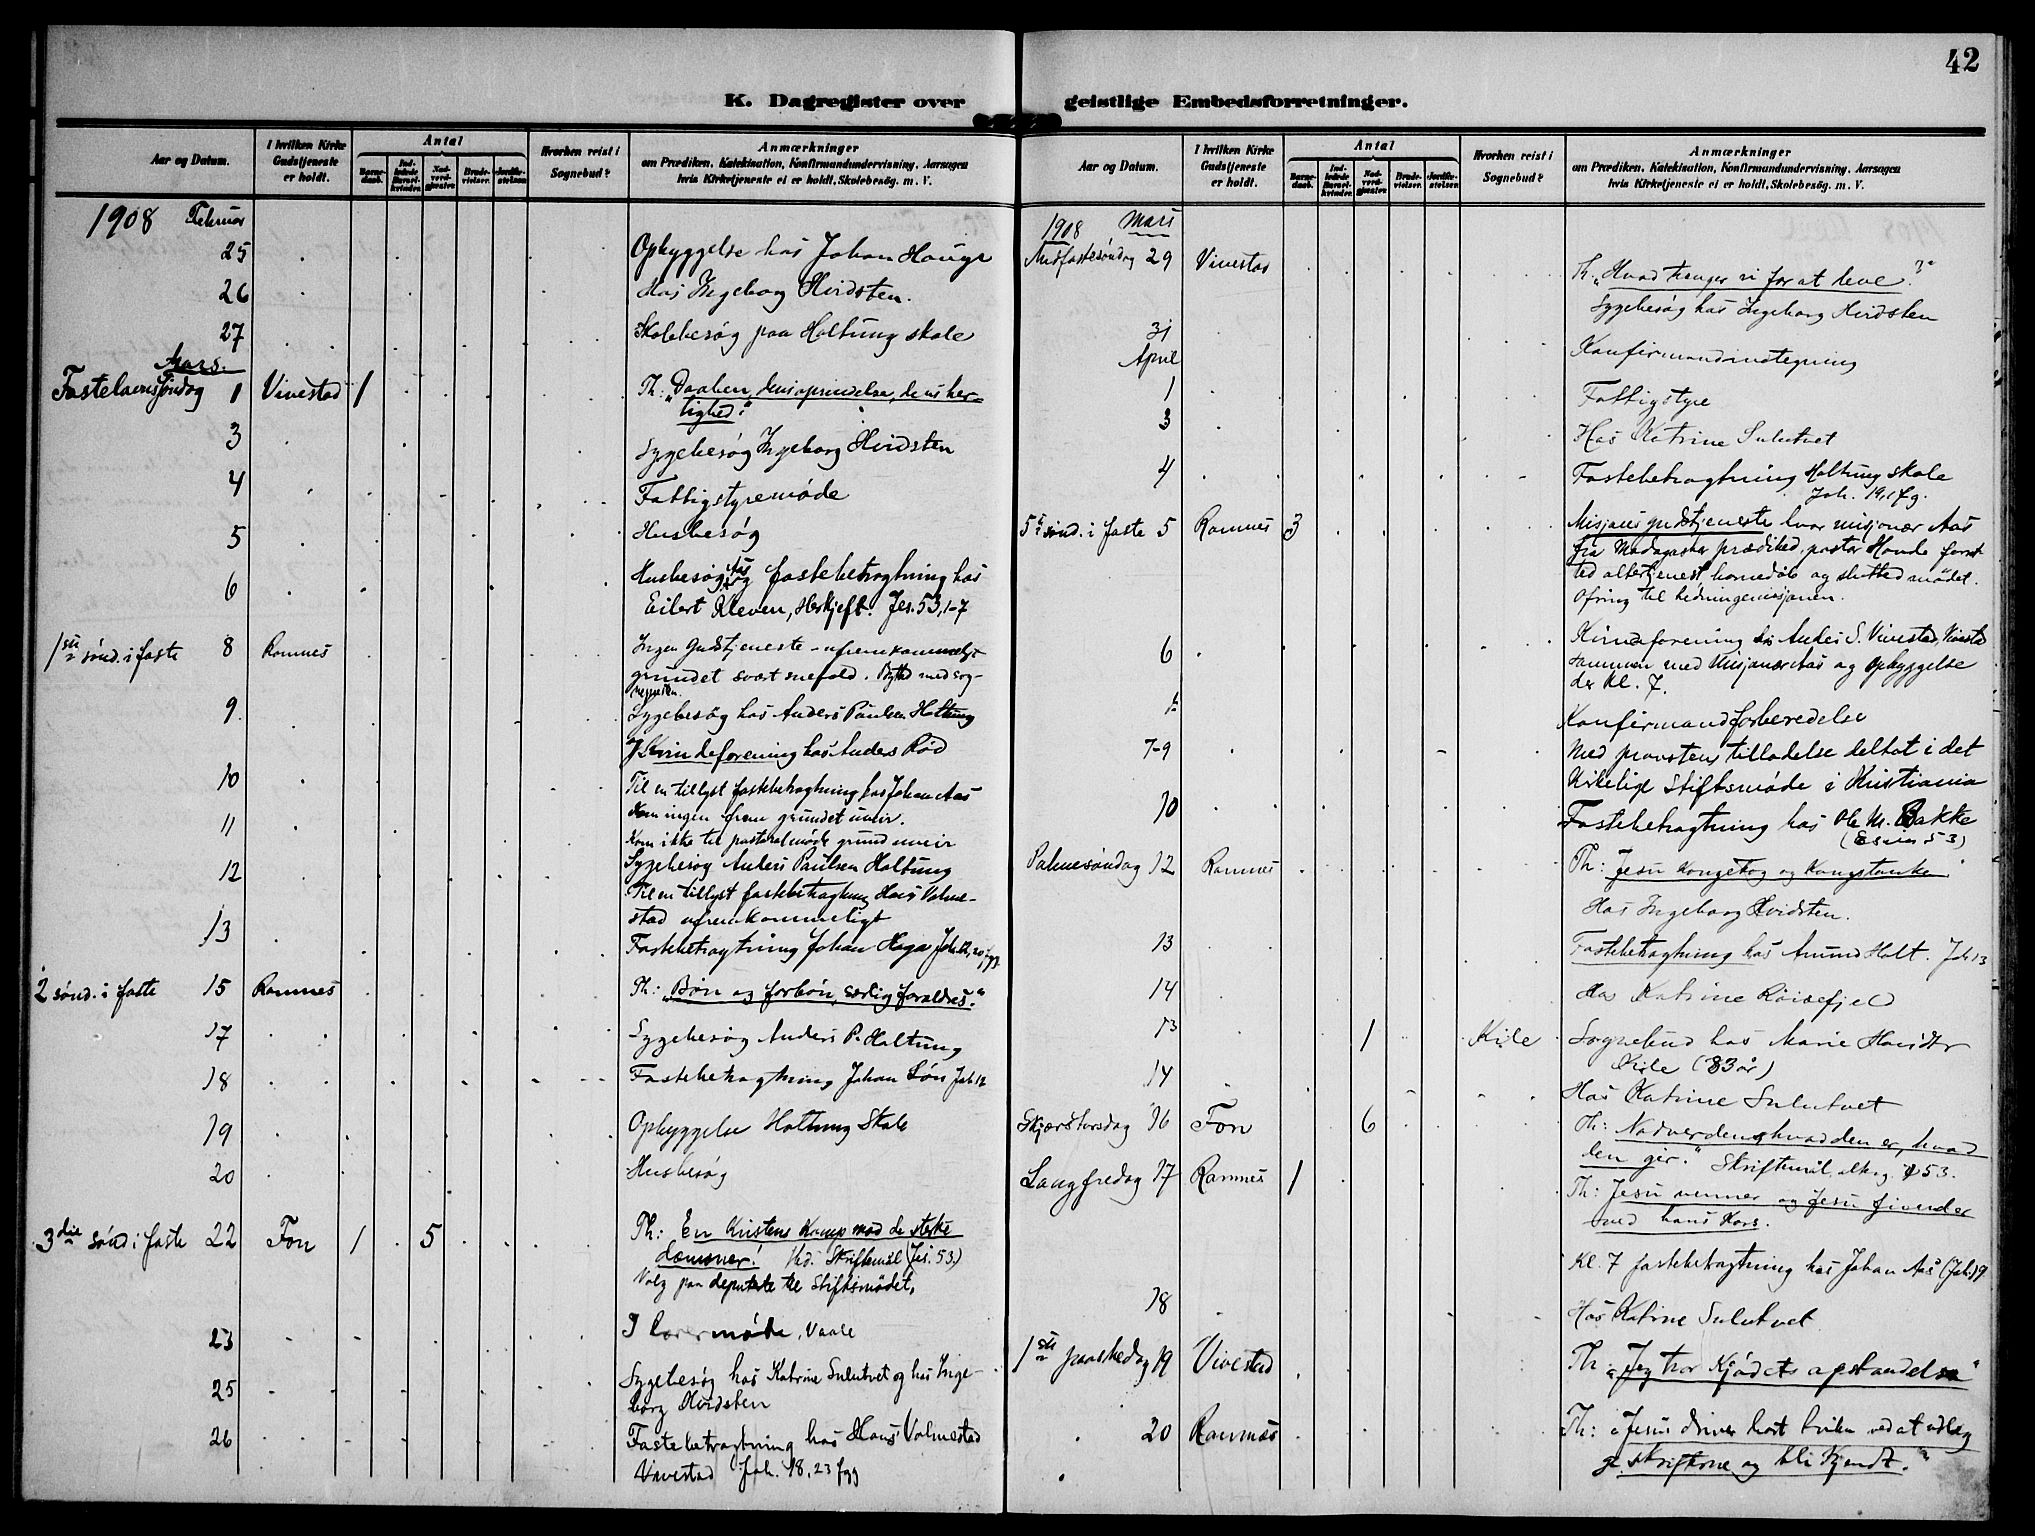 42
K. Dagregister over geistlige Embedsforretninger.
Aar og Datum.
I hvilken Kirke Gudstjeneste er holdt.
Antal
Barnedaab.
Indledede Barselkvinder.
Nadverdgjester.
Brudevielser.
Jordfæstelser.
Hvorhen reist i Sognebud?
Anmærkninger
om Prædiken, Katekisation, Konfirmandundervisning, Aarsagen
hvis Kirketjeneste ei er holdt, Skolebesög. m. V.
1908 Februar
25 Opbyggelse hos Johan Hauge
26 Hos Ingeborg Hvidsten.
27 Skolebesøg paa Holtung skole
Mars.
Fastelavnssøndag 1 Vivestad 1 Th: "Daaben, dens oprindelse, dens her-
lighed."
3 Sygebesøg Ingeborg Hvidsten
4 Fattigstyremøde
5 Husbesøg
6 Husbesøg og fastebetragtning hos
Eilert Kleven, Herkjeft. Jes. 53, 1-7
1ste sønd. i faste 8 Ramnes Ingen Gudstjeneste - ufremkommelgt
grundet svært snefold. Byttet med sog-
nepresten.
9. Sygebesøg hos Anders Paulsen Holtung
I Kvindeforening hos Anders Rød
10 Til en tillyst fastebetragtning hos Johan Aas
Kom ingen frem grundet uveir.
11 Kom ikke til pastoralmøde grund uveir
12 Sygebesøg Anders Paulsen Holtung
Til en tillyst fastebetragtning Hans Valme-
stad ufremkommeligt
13 Fastebetragtning Johan Haga Joh. 12, 20 fgg
2 sønd. i faste 15 Ramnes Th: "Bøn og forbøn, særlig forældres."
17 Sygebesøg Anders P. Holtung
18 Fastebetragtning Johan Løn Joh 12
19 Opbyggelse Holtung Skole
20 Husbesøg
3die sønd i faste 22 Fon 1 5 Th: En Kristens Kamp mod de stærke
dæmoner! Ved. Skriftemål (Jes. 53.)
Valg paa deputerte til Stiftsmødet.
23 I lærermøde, Vaale
25 Sygebesøg hos Katrine Sulutvet og hos Inge-
borg Hvidsten
26 Fastebetragtning hos Hans Valmestad
Vivestad Joh. 18, 23 fgg
Aar og Datum.
I hvilken Kirke Gudstjeneste er holdt.
Antal
Barnedaab.
Indledede Barselkvinder.
Nadverdgjester.
Brudevielser.
Jordfæstelser.
Hvorhen reist i Sognebud?
Anmærkninger
om Prædiken, Katekisation, Konfirmandundervisning, Aarsagen
hvis Kirketjeneste ei er holdt, Skolebesög. m. V.
1908 Mars
Midfastesøndag 29 Vivestad Th. "Hvad trenger vi for at leve?"
Sygebesøg hos Ingeborg Hvidsten
31 Konfirmandindtegning
April
1 Fattigstyre
3 Hos Katrine Sulutvet
4 Fastebetragtning Holtung skole
Joh. 19, 1 fg.
5te sønd. i faste 5 Ramnes 3 Misjons gudstjeneste hvor misjonær Aas
fra Madagaskar prædiked. pastor Hande
ted altertjenest, barnedåb og slutted mødet.
Ofring til hedningemisjonen.
6 Kvindeforening hos Anders S. Vivestad, Vivestad
sammen med Misjonær Aas og Opbyggelse
der Kl. 7.
Konfirmandforberedelse
7-9 Med provstens tilladelse deltat i det
Kirkelige Stiftsmøde i Kristiania
10 Fastebetragtning hos Ole M. Bakke
(Esaias 53)
Palmesøndag 12 Ramnes Th: Jesu Kongetog og Kongstanke
Hos Ingeborg Hvidsten.
13 Fastebetragtning hos Amund Holt. Joh 13
14 Hos Katrine Röisefjeld
13 1 Kile Sognebud hos Marie
Kile (83 år)
14 Hos Katrine Sulutvet
Skjærstorsdag 16 Fon 6 Th: Nadverden, hvad den er, hvad
den gir." Skriftemål 53.
Langfredag 17 Ramnes 1 Th: Jesu venner og Jesu fiender
ved hans Kors.
Kl. 7 fastebetragtning hos Johan Aas (Joh. 19
18 Hos Katrine Sulutvet
1ste paaskedag 19 Vivestad Th "Jeg tror Kjødets opstandelse"
20 Ramnes Th: "Jesus driver bort tvilen ved at udlæg
ge skriftene og bli Kjendt."